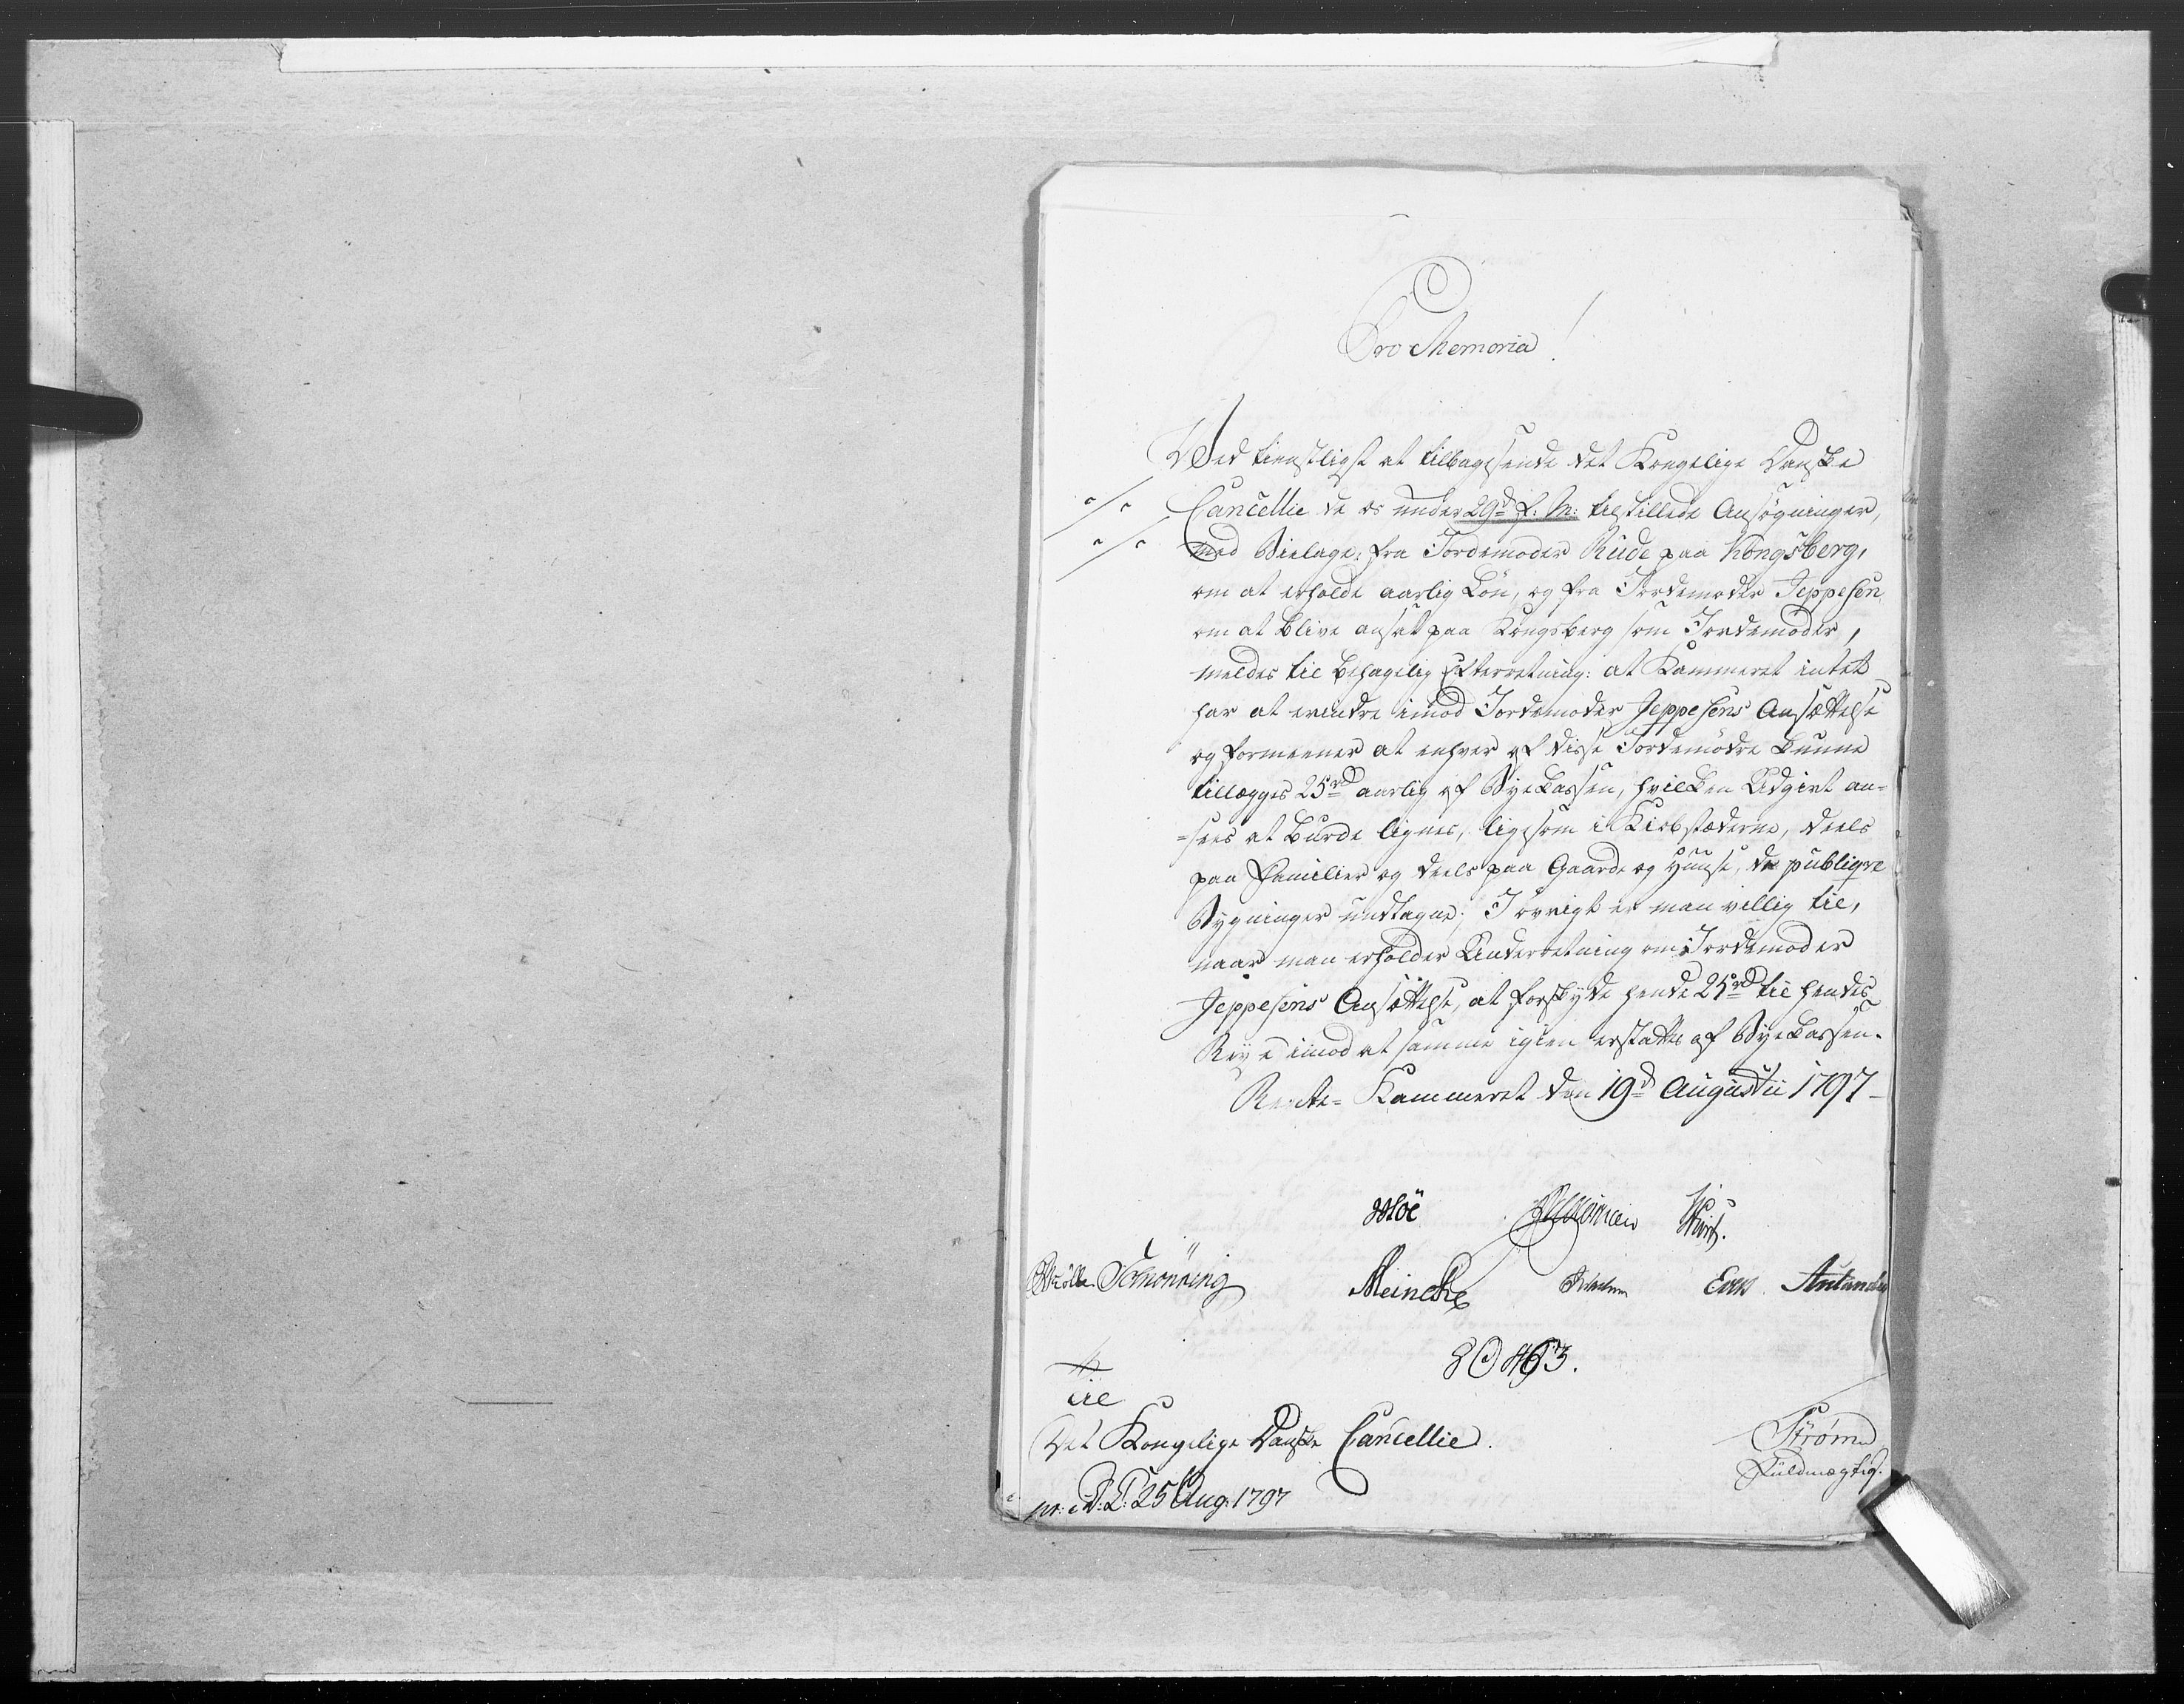 Pro Memoria!
Ved tienstligst at tilbagesende det Kongelige Danske
Cancellie de os under 29d f: M: tilstillede Ansøgninger,
med Bielage: fra Jordemoder Rude paa Kongsberg,
om at erholde aarlig Løn, og fra Jordemoder Jeppesen
om at blive ansat paa Kongsberg som Jordemoder,
meldes til behagelig Efterretning: at Kammeret intet
har at erindre imod Jordemoder Jeppesens Ansættelse
og formeener at enhver af disse Jordemødre kunne
tillægges 25rd aarlig af Byekassen, hvilken Udgivt an-
=sees at burde lignes, ligesom i Kiøbstæderne, deels
paa Familier og deels paa Gaarde og Huuse, de publiqve
Bygninger undtagne; I øvrigt er man villig til,
naar man erholder Underretning om Jordemoder
Jeppesens Ansættelse, at forskyde hende 25rd til hendes
Reise imod at samme igien erstattes af Byekassen.
Rente=Kammeret den 19d Augustii 1797
Schønning
Meincke
til
Det Kongelige Danske Cancellie.
Strøm
Fuldmægtig.
25 Aug: 1797